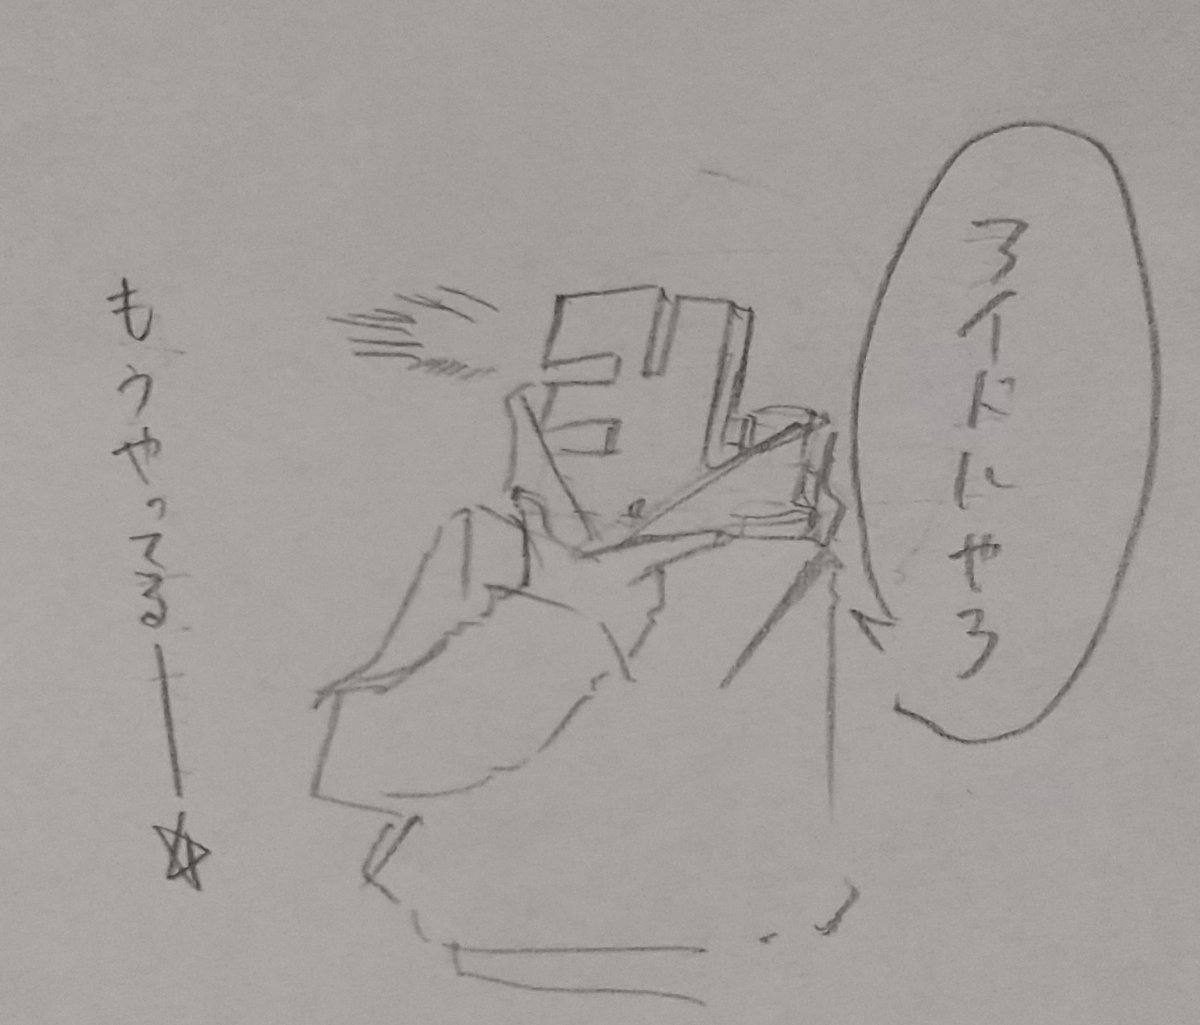 ろイドにやろ
もうやってるー☆